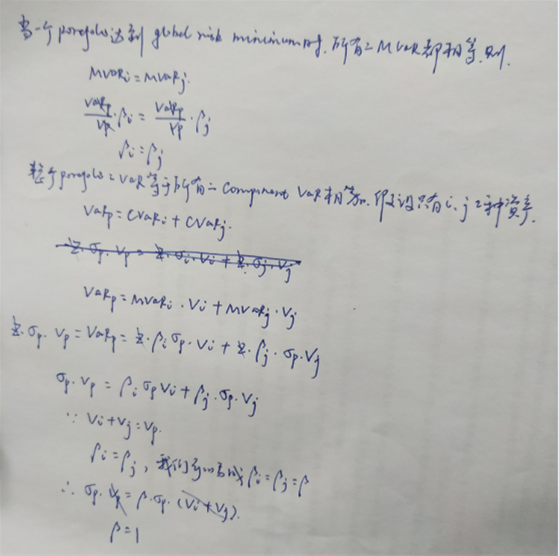 当一个 porfolo达到 global risk minimum时,所有的MVaR都相等,则.
MVaRi = MVaRj
VaRp/Vp · βi = VaRp/Vp · βj
βi = βj
整个porfolo的VaR等于所有的Component VaR相加,假设只有i、j 2种资产.
VaRp = CVaRi + CVaRj.
z·σp·Vp = z·σi·Vi + z·σj·Vj
VaRp = MVaRi · Vi + MVaRj · Vj
z·σp·Vp = VaRp = z·βi·σp·Vi + z·βj·σp·Vj
σp·Vp = βiσpVi + βj·σp·Vj
∵ Vi+Vj = Vp.
βi = βj,我们可以写成βi = βj = β
∴ σp·Vp = β·σp·(Vi+Vj).
β = 1